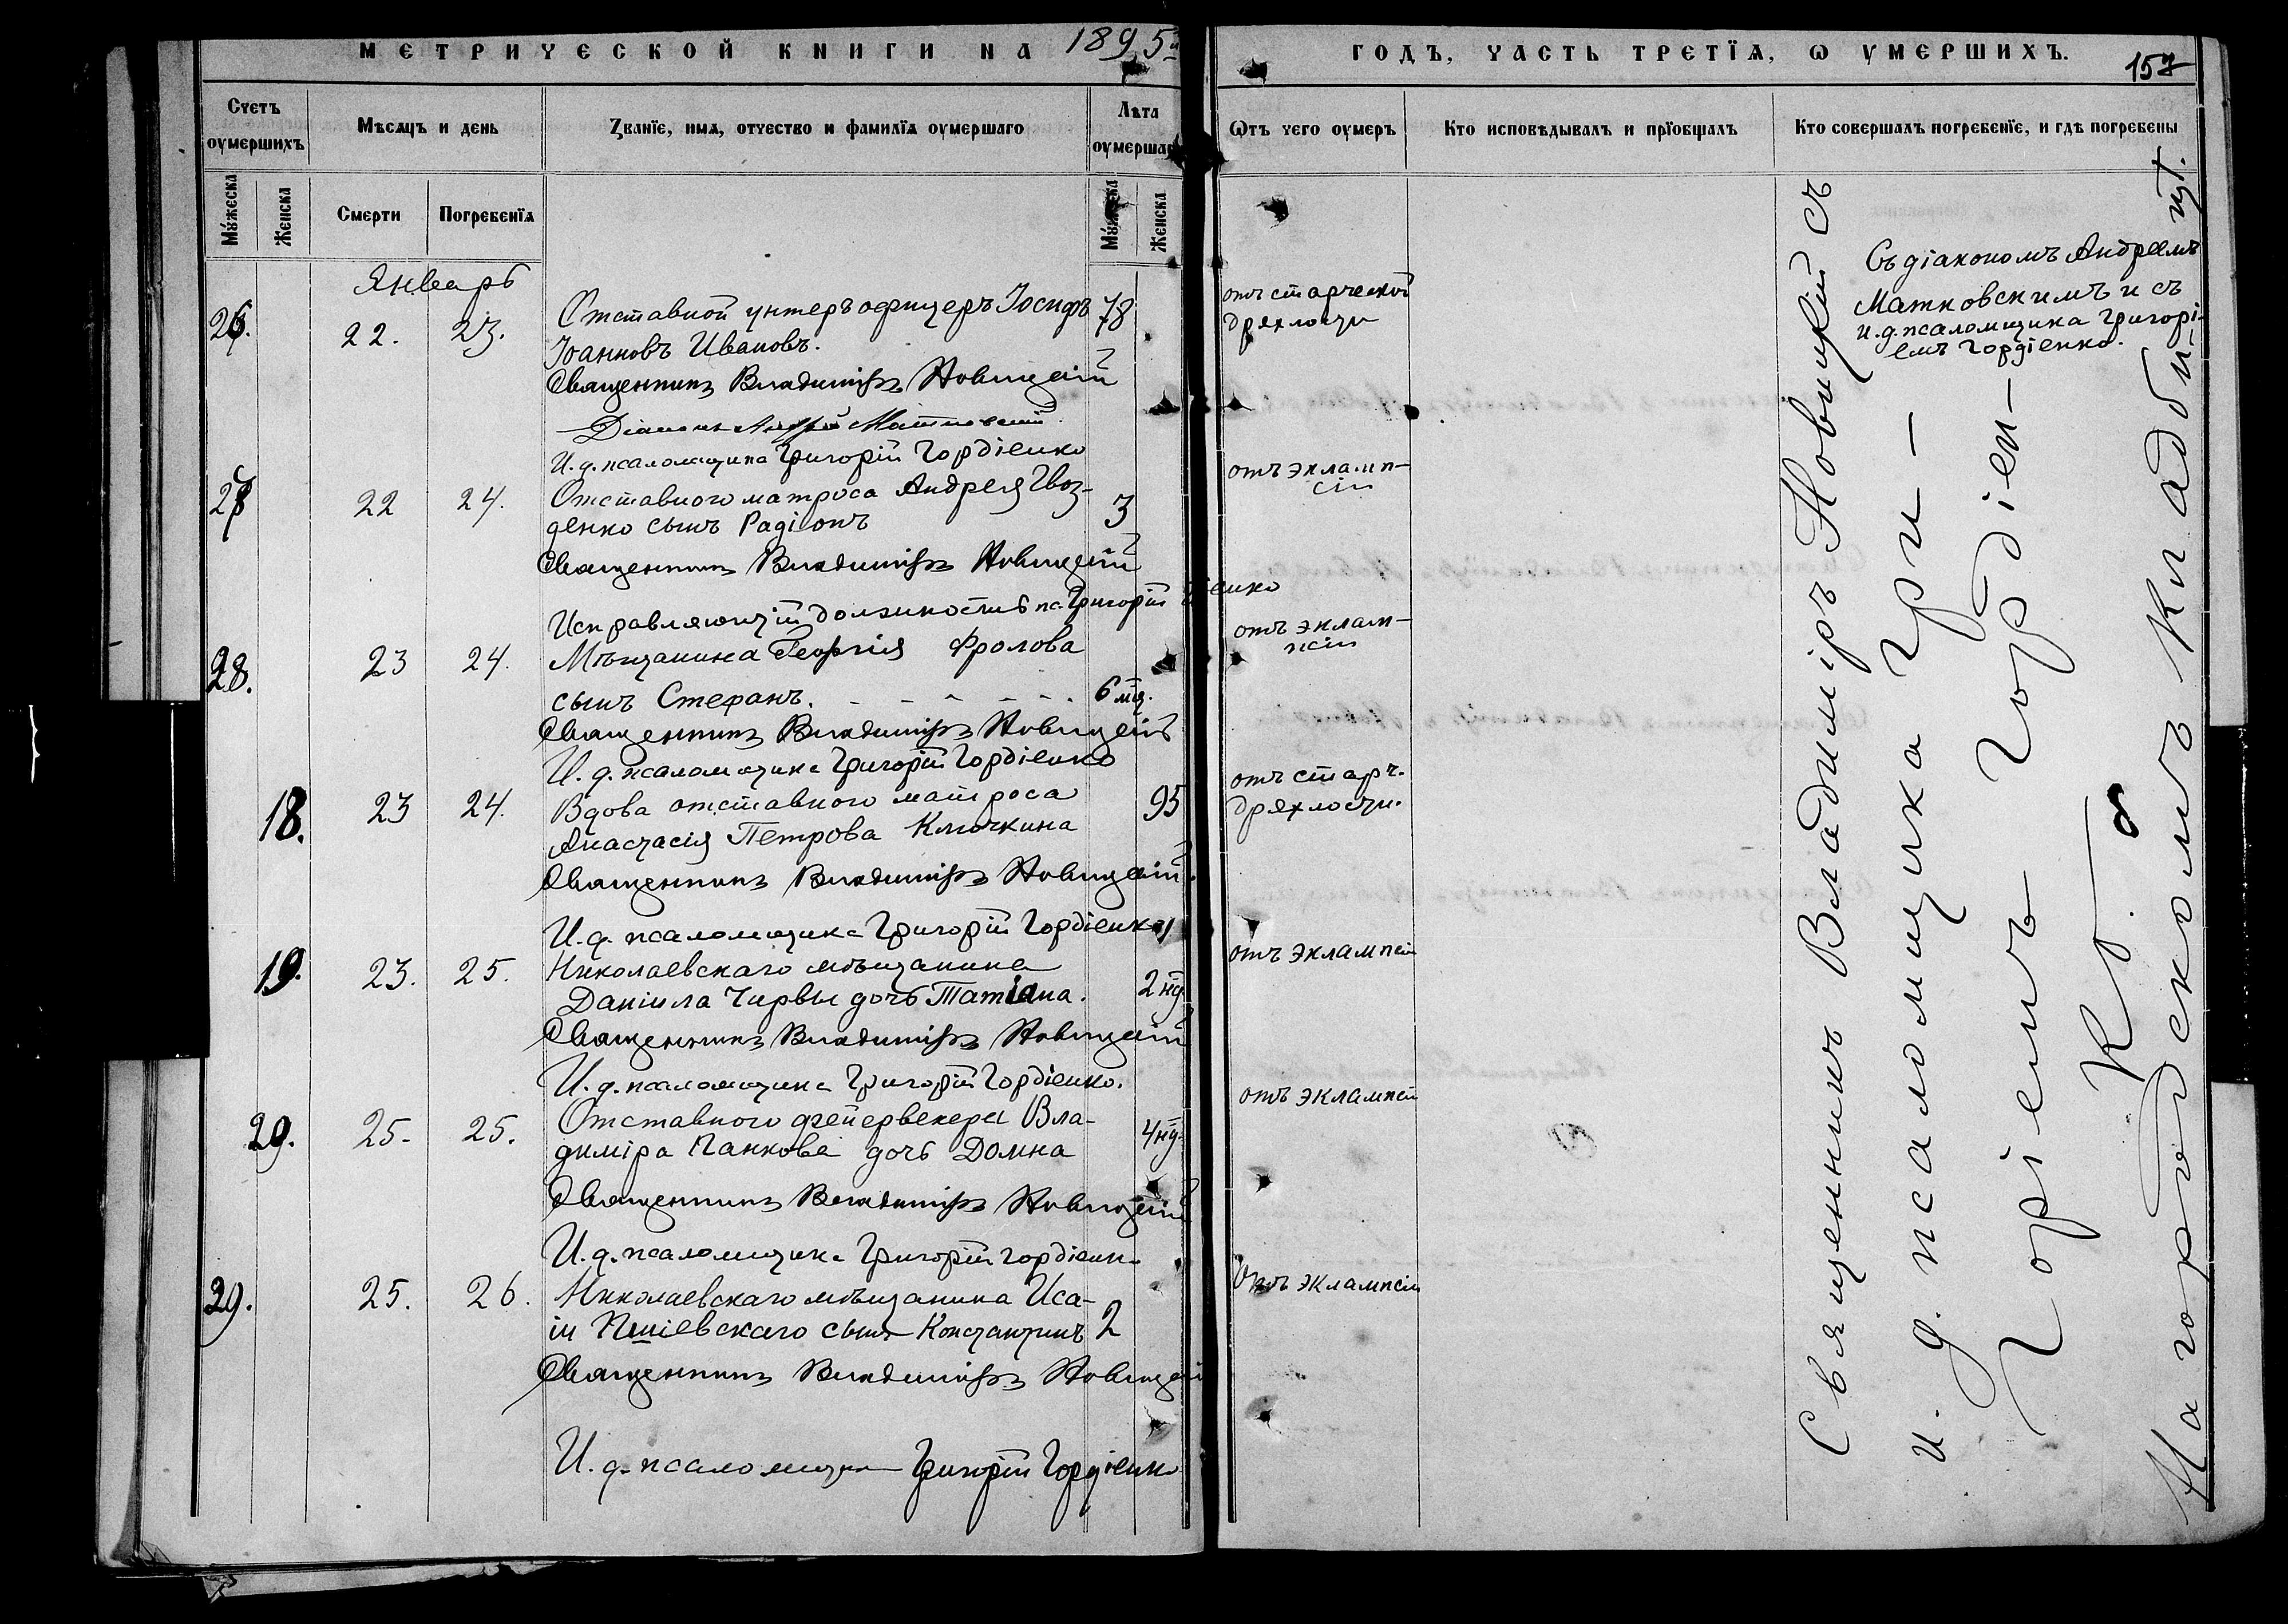 МЕТРИЧЕСКОЙ КНИГИ НА 1895й
ГОДЪ, ЧАСТЬ ТРЕТІѦ, Ѡ УМЕРШИХЪ. 157
Счетъ оумершихъ
Мѣсѧцъ и день
Званїе, имѧ, отчество и фамилїѧ оумершаго
Лѣта оумершаго
Мꙋжеска
Женска
Смерти
Погребенїѧ
Мꙋжеска
Женска
Ѿтъ чего оумеръ
Кто исповѣдывалъ и прїобщалъ
Кто совершалъ погребенїе, и гдѣ погребены
Январь
26. 22. 23. Отставной унтеръ офицеръ Іосифъ 78
Іоанновъ Ивановъ.
отъ старческой
дряхлости
Священникъ Владиміръ Новицкій
Діаконъ Андрей Матковскій
И. д. псаломщика Григорій Гордіенко
27 22 24. Отставного матроса Андрея Гвоз-
денко сынъ Радіонъ 3
отъ эклямп-
сіи
Священникъ Владиміръ Новицкій
Исправляющій должность пс. Григорій Гордіенко
28. 23 24. Мѣщанина Георгія Фролова
сынъ Стефанъ. 6 мц.
отъ эклам-
псіи
Священникъ Владиміръ Новицкій
И. д. псаломщика Григорій Гордіенко
18. 23 24. Вдова отставного матроса 95
Анастасія Петрова Клочкина
отъ старч.
дряхлости.
Священникъ Владиміръ Новицкій
И. д. псаломщика Григорій Гордіенко
19. 23. 25. Николаевскаго мѣщанина
Даніила Чирвы дочь Татіана. 2 нд.
отъ эклампсіи
Священникъ Владиміръ Новицкій
И. д. псаломщика Григорій Гордіенко.
20. 25. 25. Отставного фейерверкера Вла-
диміра Панкова дочь Домна 4 нд.
отъ эклампсіи
Священникъ Владиміръ Новицкій
И. д. псаломщика Григорій Гордіенко
29. 25. 26. Николаевскаго мѣщанина Иса-
іи сынъ Константинъ 2
отъ эклампсіи
Священникъ Владиміръ Новицкій
И. д. псаломщика Григорій Гордіенко
Съ діакономъ Андреемъ
Матковскимъ и съ
и. д. псаломщика Григорі-
емъ Гордіенко.
Священникъ Владиміръ Новицкій съ
и. д. псаломщика Гри-
горіемъ Гордіен-
ко.
На городскомъ кладби-